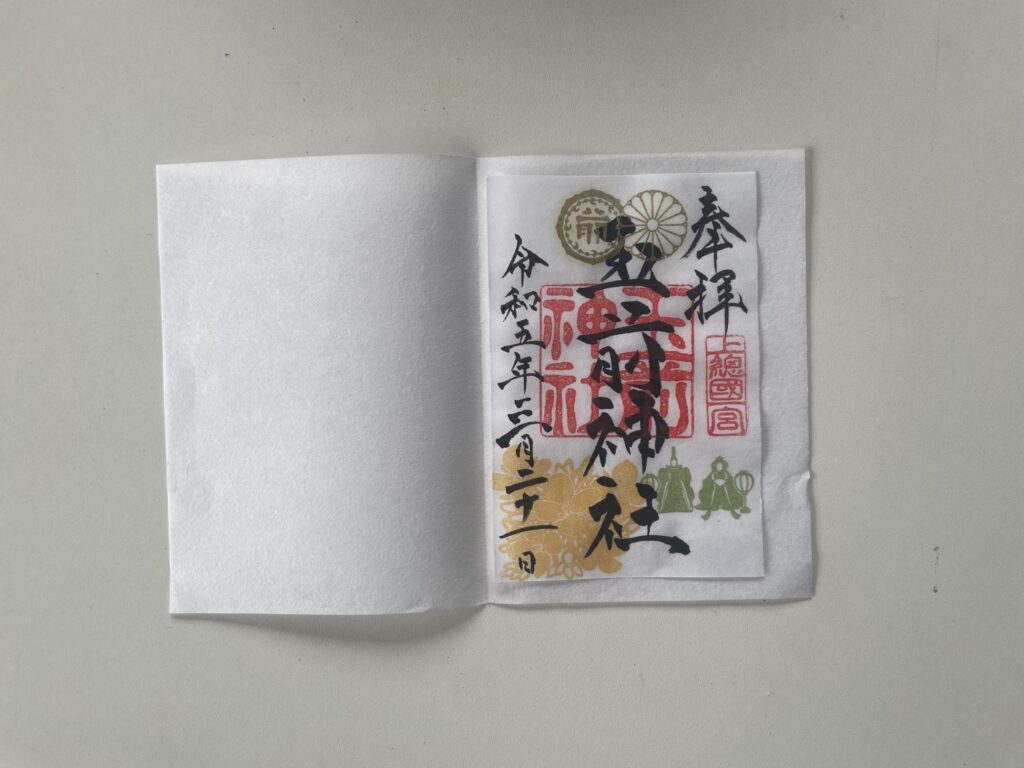 奉拝
上總國一宮
玉前神社
玉前神社
令和五年三月二十一日